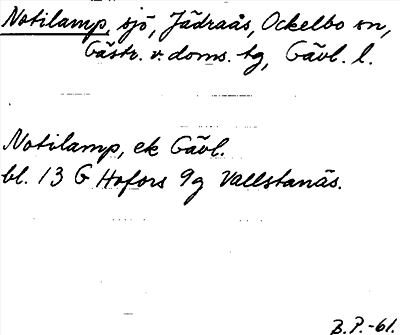 Notilamp, sjö, Jädraås, Ockelbo sn,
Gästr. v. doms. tg, Gävl. l.
Notilamp, ek Gävl.
bl. 13 G Hofors 9g Vallstanäs.
B.P.-61.